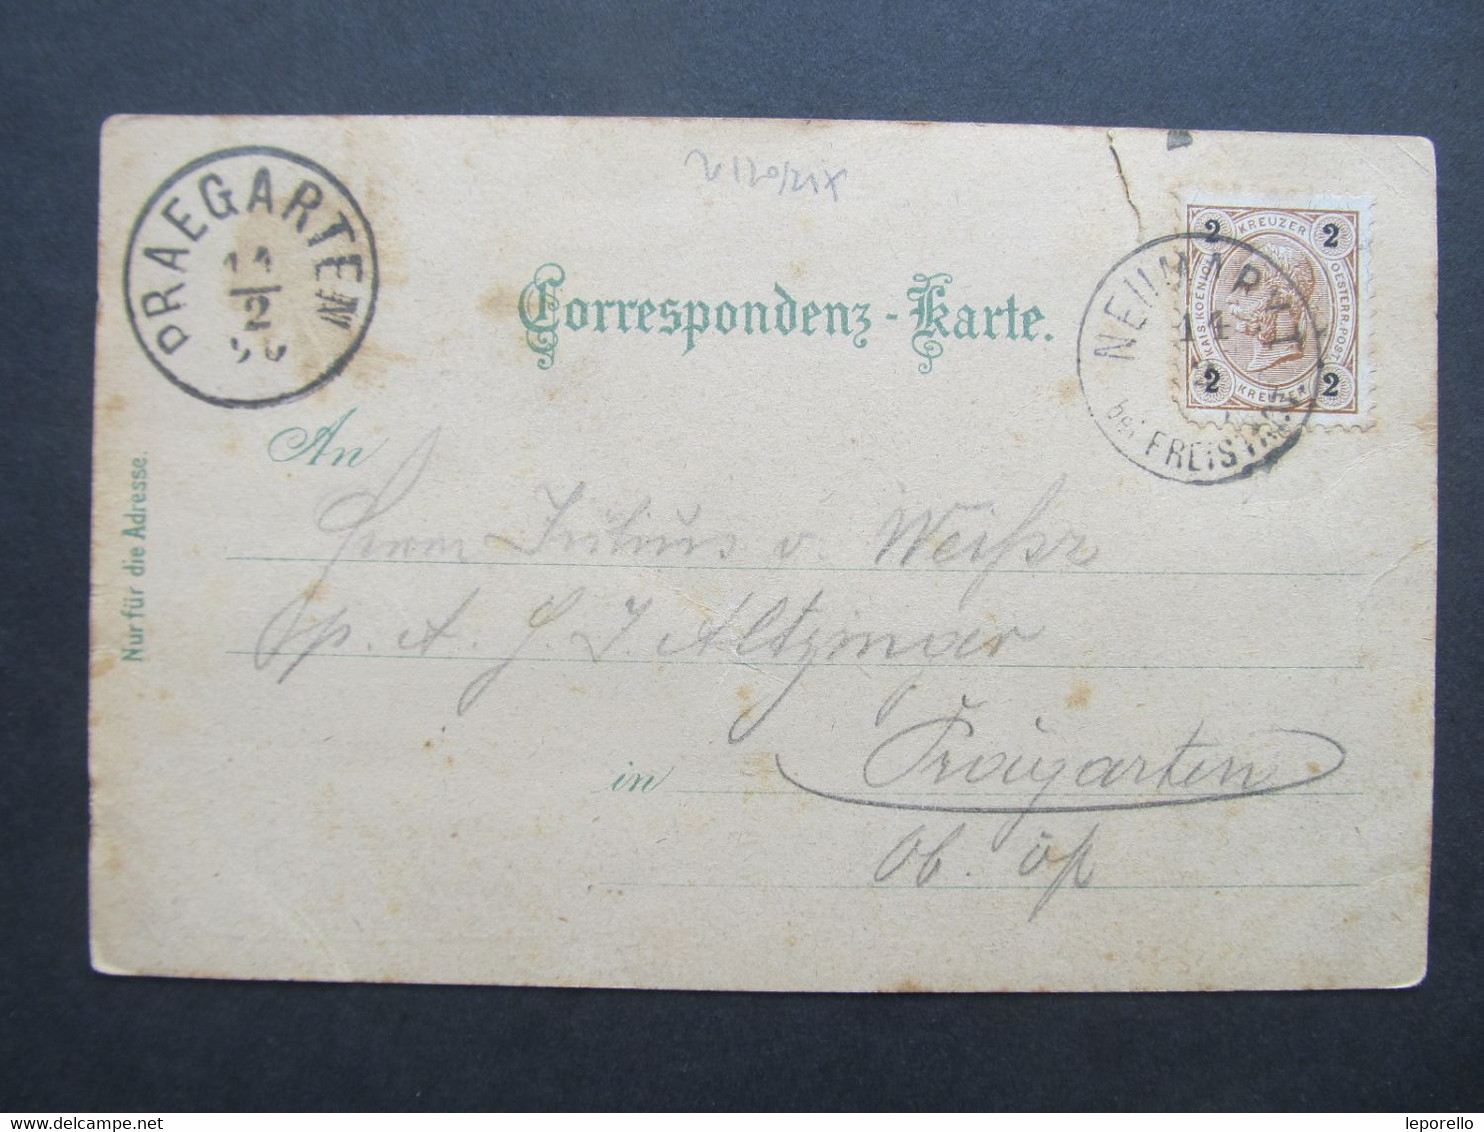 PRAEGARTEN
14
2
96
Correspondenz-Karte.
NEUMARKT
14
bei FREISTADT
2 KREUZER 2
KAIS. KOENIGL. OESTERR. POST
2 KREUZER 2
Nur für die Adresse.
An
Herrn Julius v. Weihsz
p. A. H. J. Altzinger
in Pragarten
Ob. öst
leporello
delcampe.net